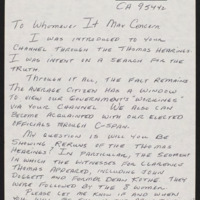 CA 95442
To Whomever It May Concern
I was introduced to your
Channel through the Thomas Hearings.
I was intent in a search for the
truth.
Through it all, the fact remains
the average citizen has a window
to view our Government's
via your channel. We also can
become acquainted with our elected
officials through C-Span.
My question is will you be
showing reruns of the Thomas
Hearings? In particular, the segment
in which the witnesses for Clarence
Thomas appeared, including John
Doggett and Former Dean Kothe. They
were followed by the 8 women.
Please let me know if and when